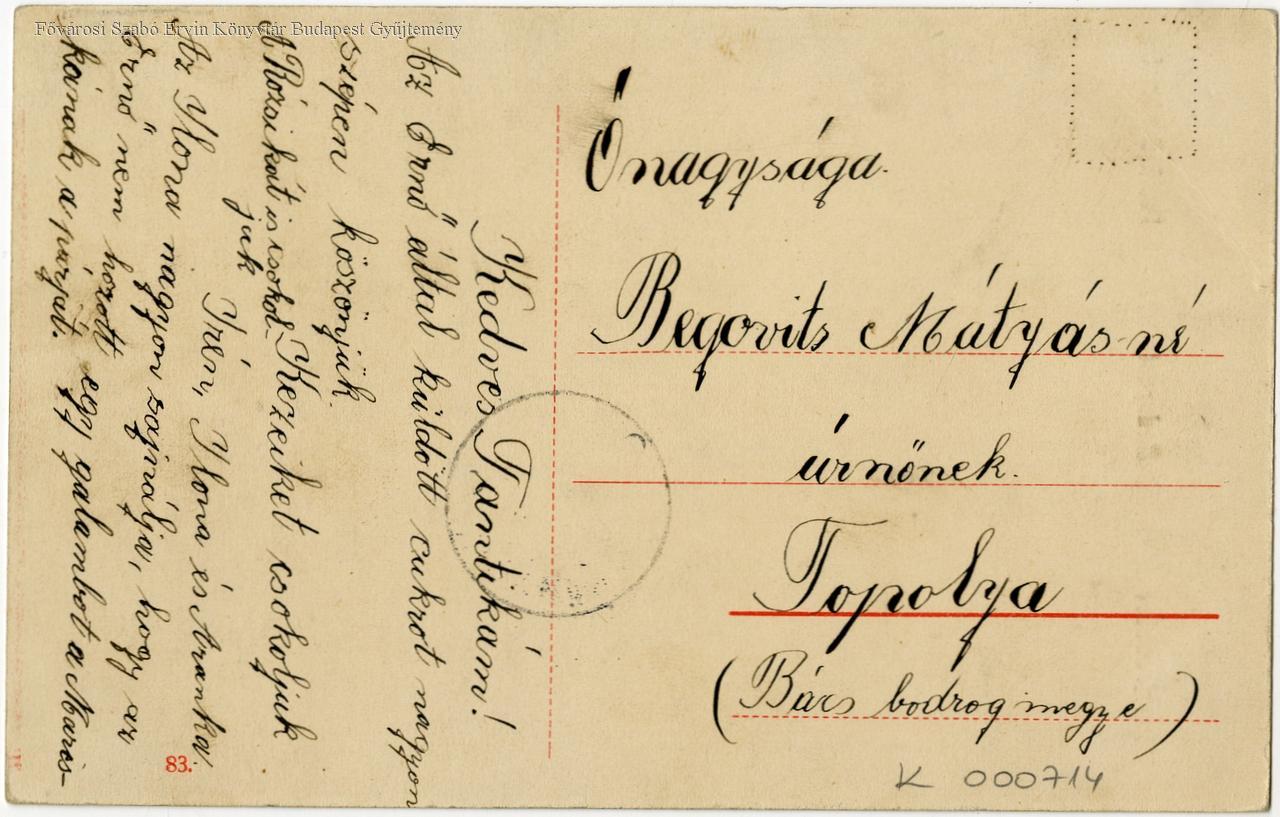 Fővárosi Szabó Ervin Könyvtár Budapest Gyűjtemény
Kedves Tantikám!
Az Ernő által küldött cukrot nagyon
szépen köszönjük.
A Rózsikát is csokol-
juk
Kezeiket csokoljuk
Irén, Ilona és Aranka
Az Ilona nagyon sajnálja, hogy az
Ernő nem hozott egy galambot a Maris-
kának a párját.
83.
Őnagysága.
Begovits Mátyás-né
úrnőnek.
Topolya
(Bács bodrog megye)
K 000714